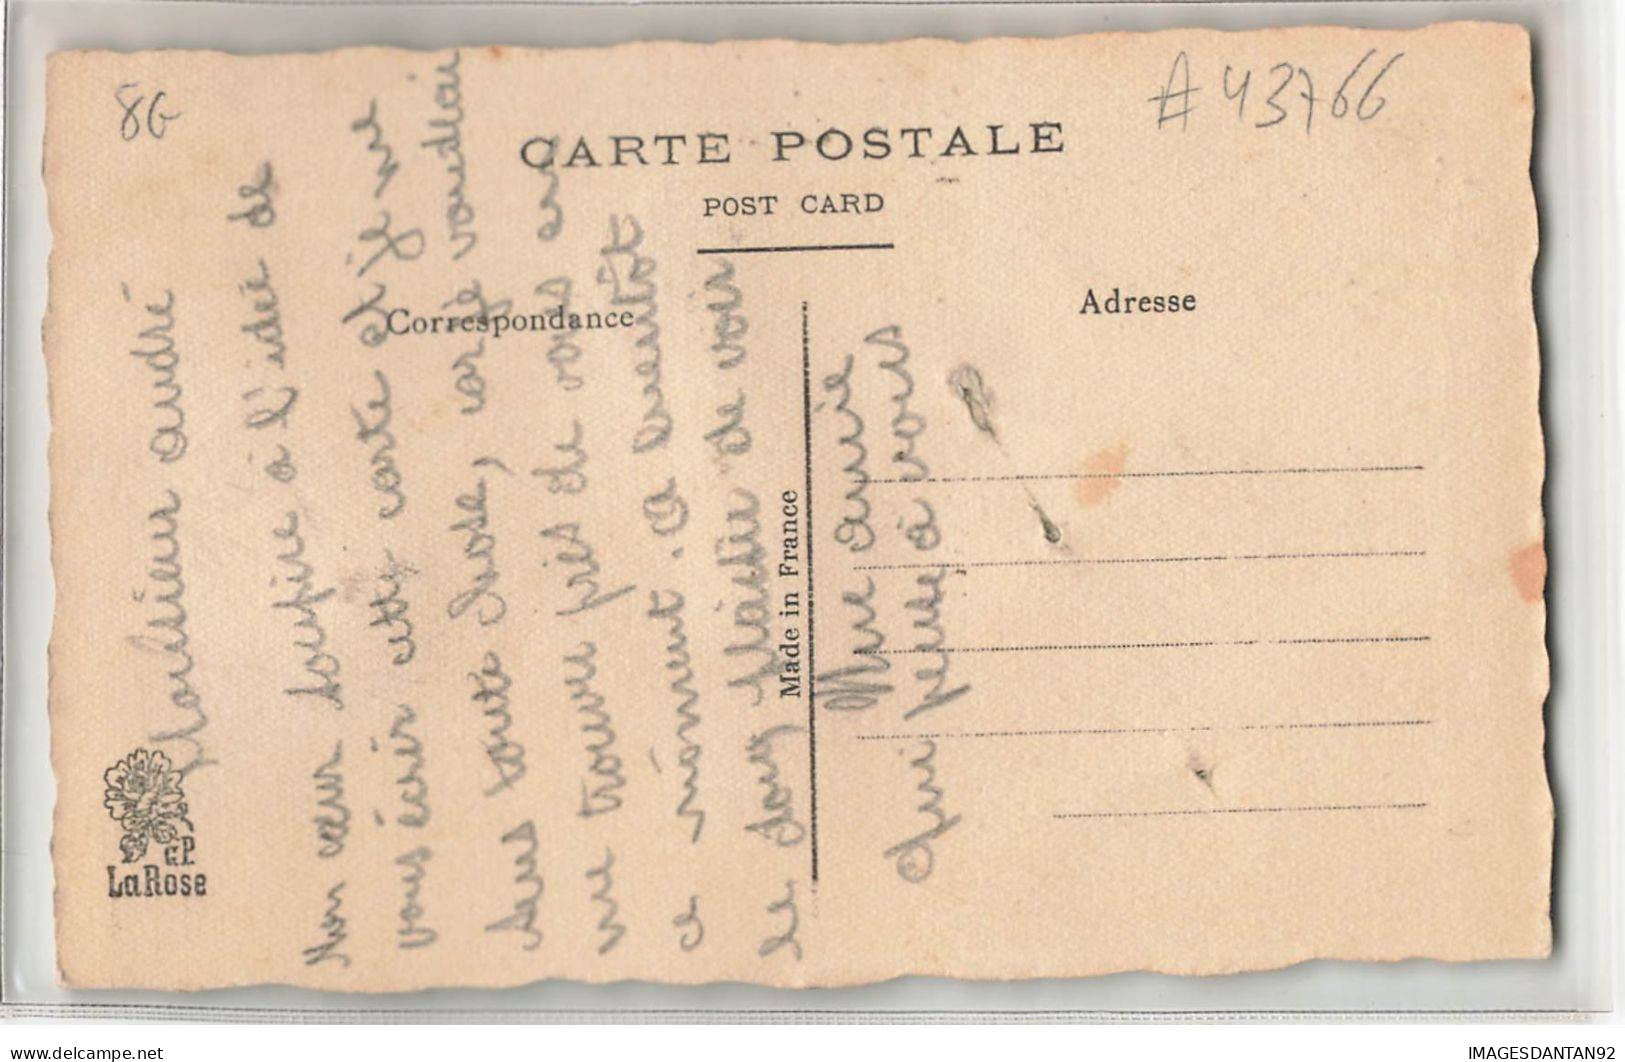 8G
# 43766
CARTE POSTALE
POST CARD
Correspondance
Adresse
Made in France
G.P.
La Rose
Monsieur andré
Mon cœur soupire à l'idée de
vous écrir cette carte et je me
sens toute chose, car je voudrai
me trouvé près de vous en
ce moment. A bientôt
le doux plaisir de voir
Une amie
qui pense à vous
www.delcampe.net
IMAGESDANTAN92